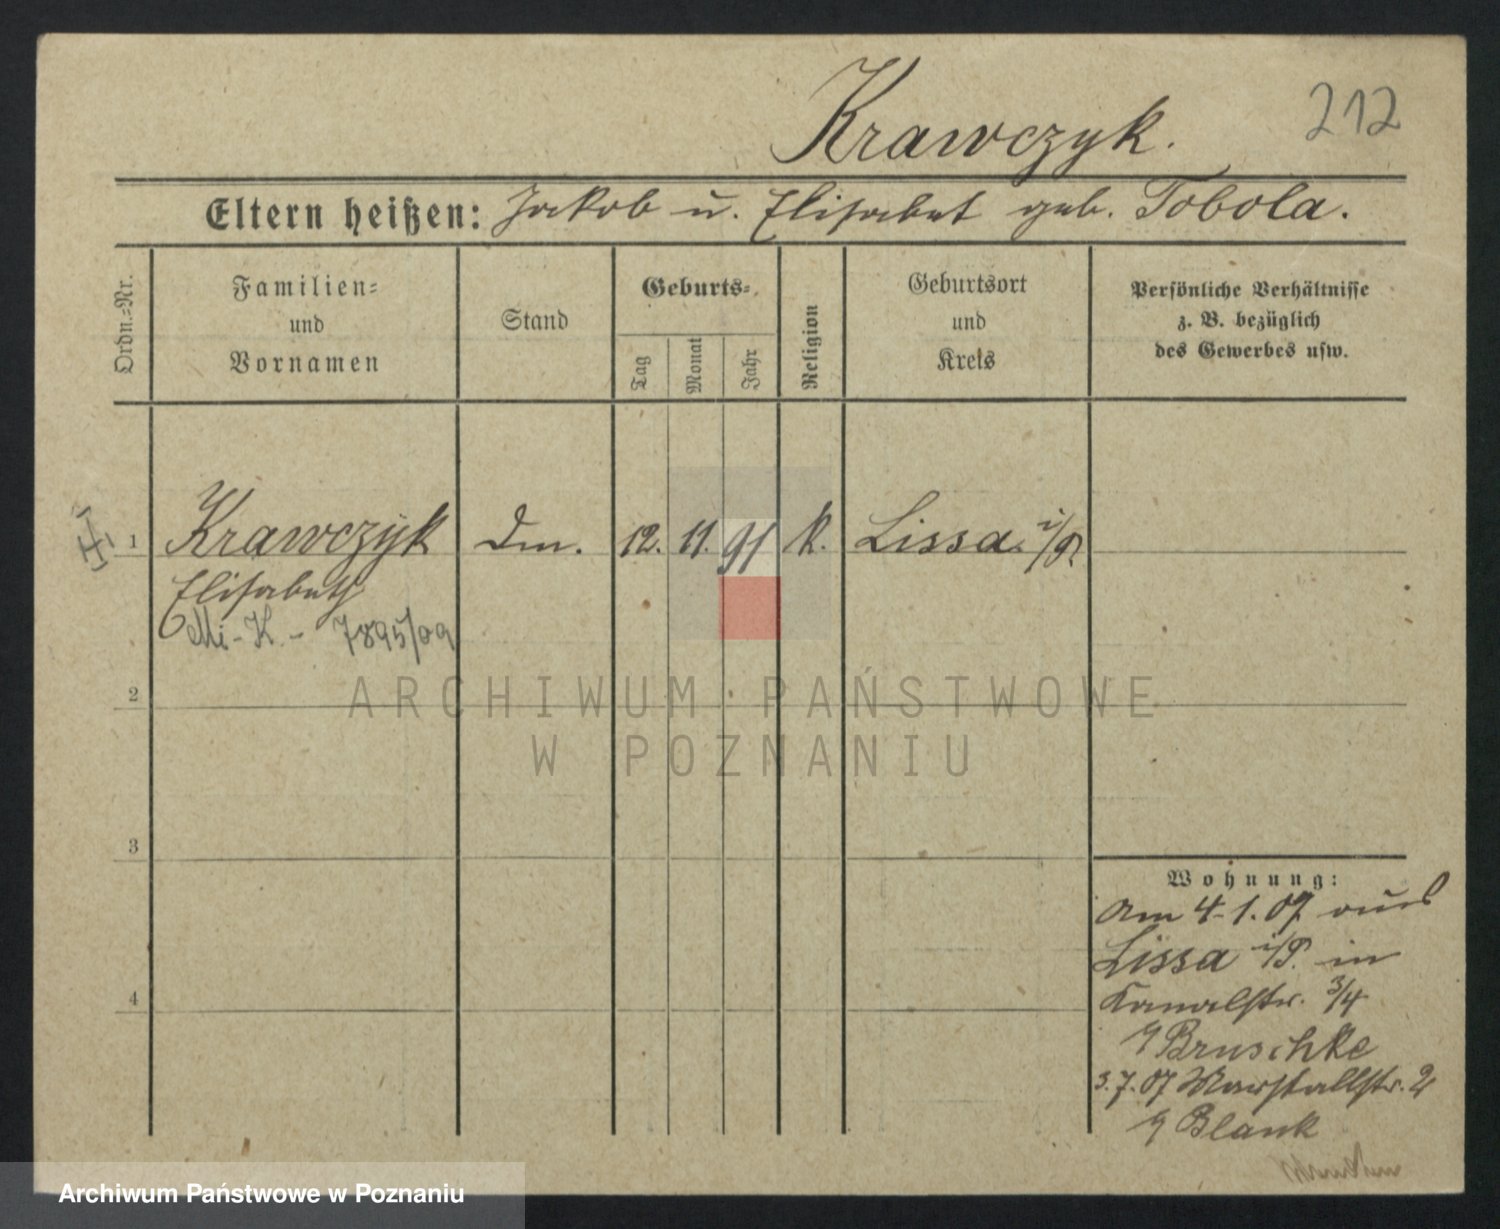 Krawczyk.
212
Eltern heißen: Jakob u. Elisabet geb. Tobola.
Ordn.-Nr.
Familien-
und
Vornamen
Stand
Geburts-
Tag
Monat
Jahr
Religion
Geburtsort
und
Kreis
Persönliche Verhältnisse
z. B. bezüglich
des Gewerbes usw.
1 Krawczyk Dm. 12. 11. 91 k. Lissa i/P.
Elisabeth
Mi-K. - 7895/09
2
ARCHIWUM PAŃSTWOWE
W POZNANIU
3
Wohnung:
Am 4.1.07 aus
Lissa i/P. in
4
Kanalstr. 3/4
Bruschke
3.7.07 Marstallstr. 2
Blank
Archiwum Państwowe w Poznaniu